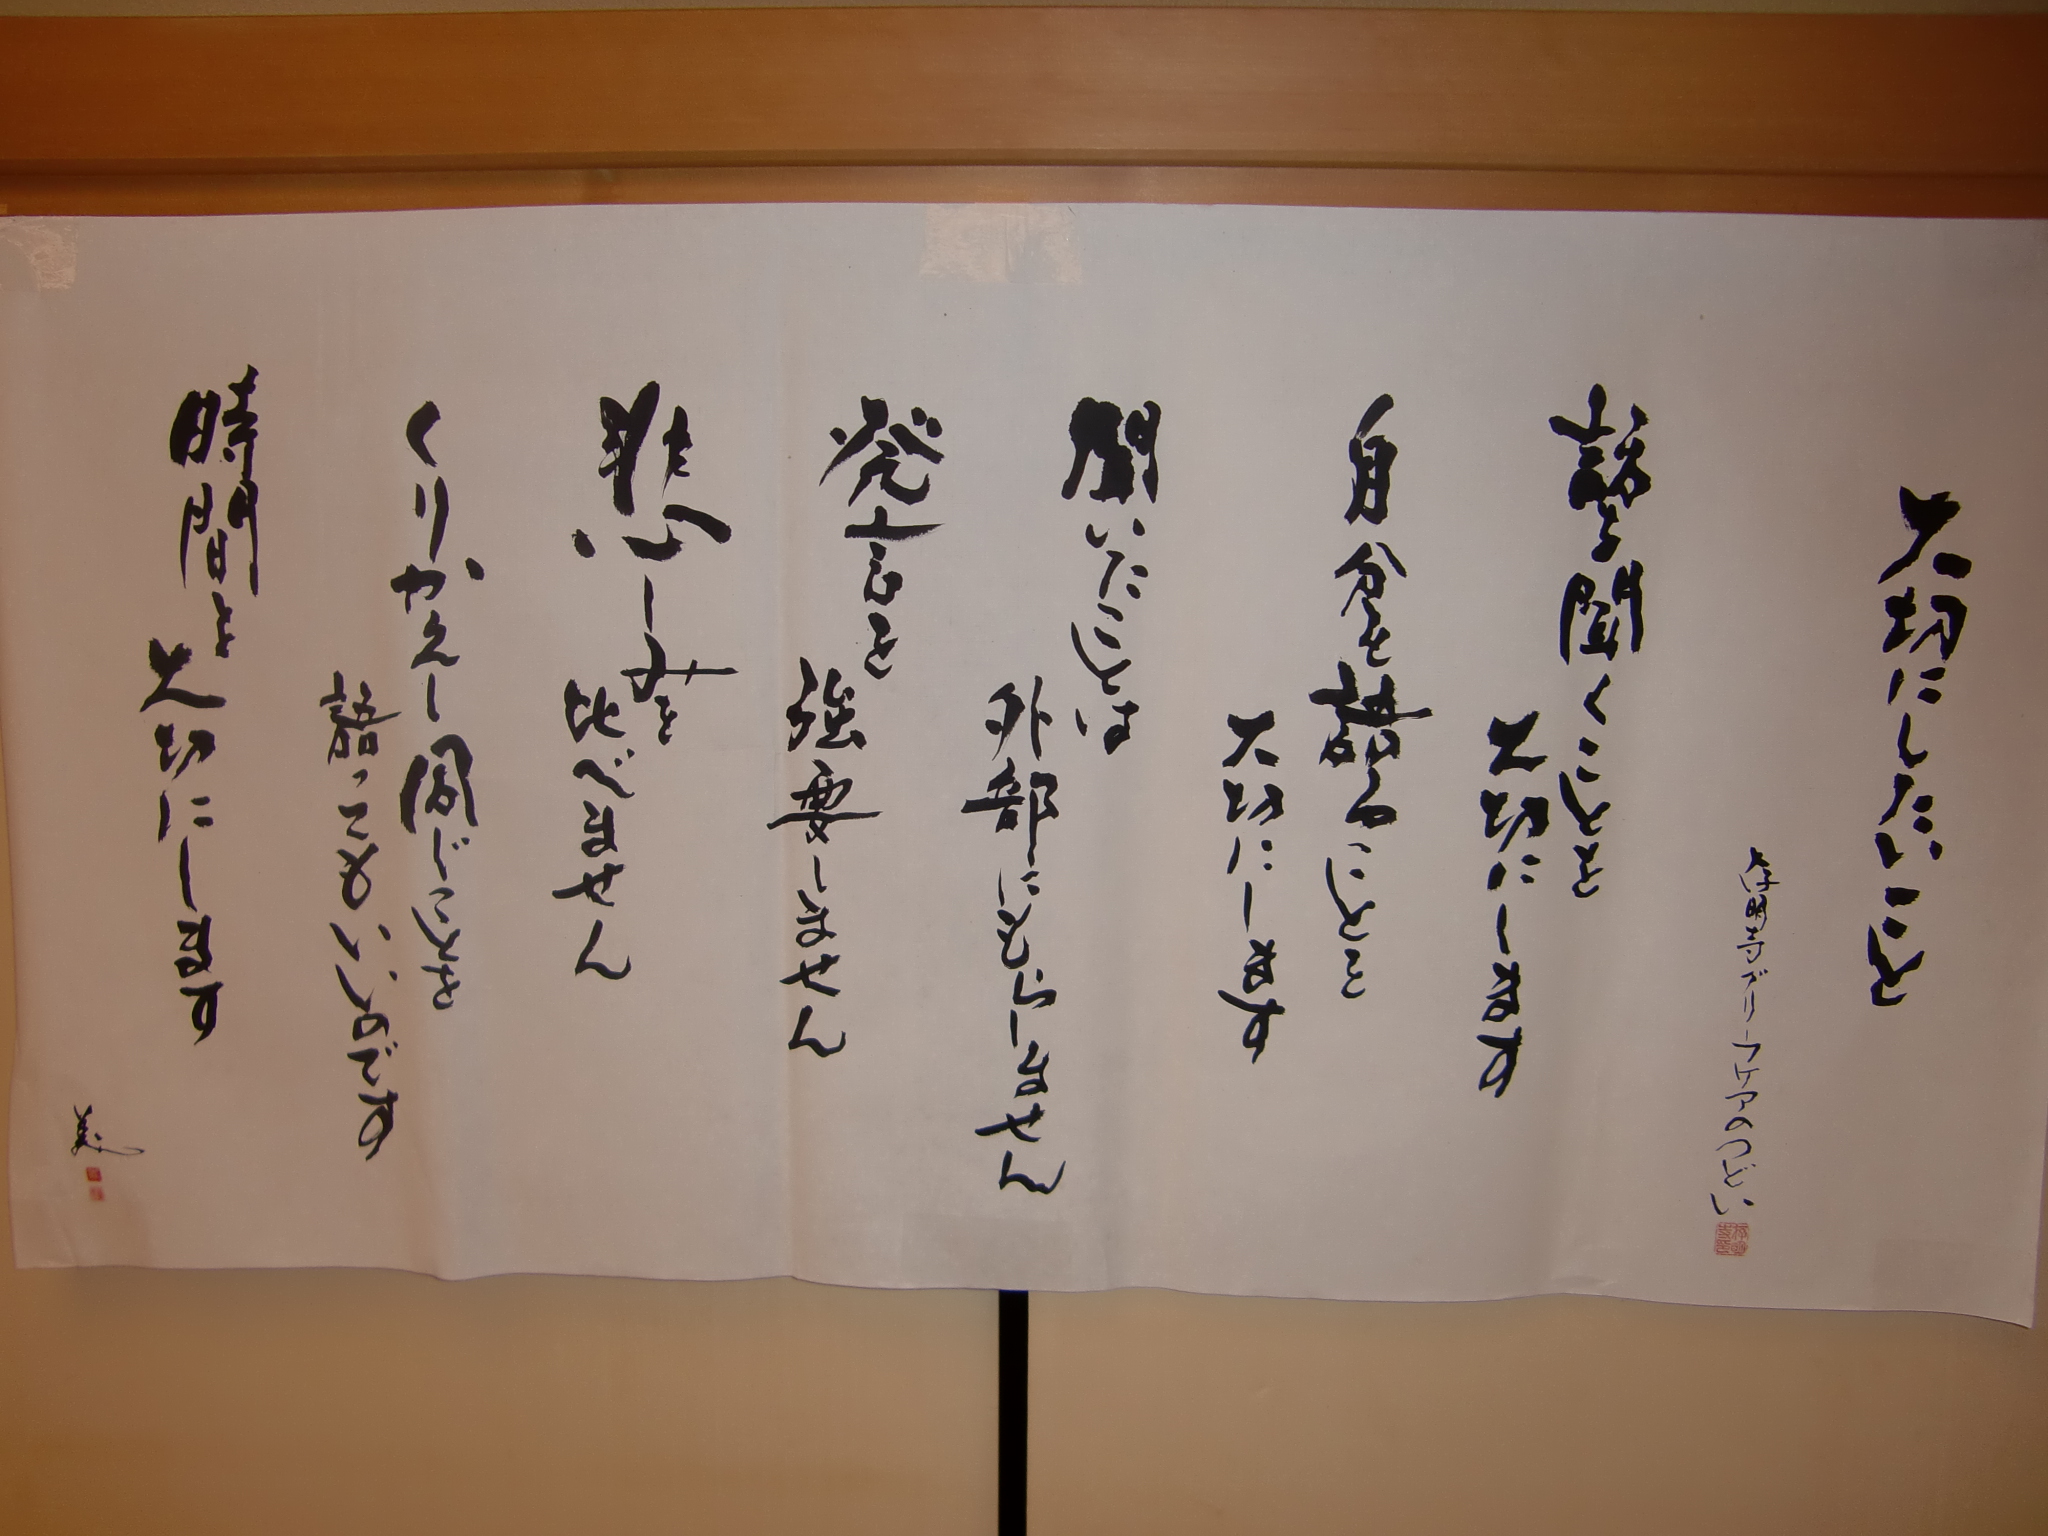 大切にしたいこと
大浄明寺グリーフケアのつどい
話を聞くことを
大切にします
自分を語ることを
大切にします
聞いたことは
外部にもらしません
発言を
強要しません
悲しみを
比べません
くりかえし同じことを
語ってもいいのです
時間を
大切にします